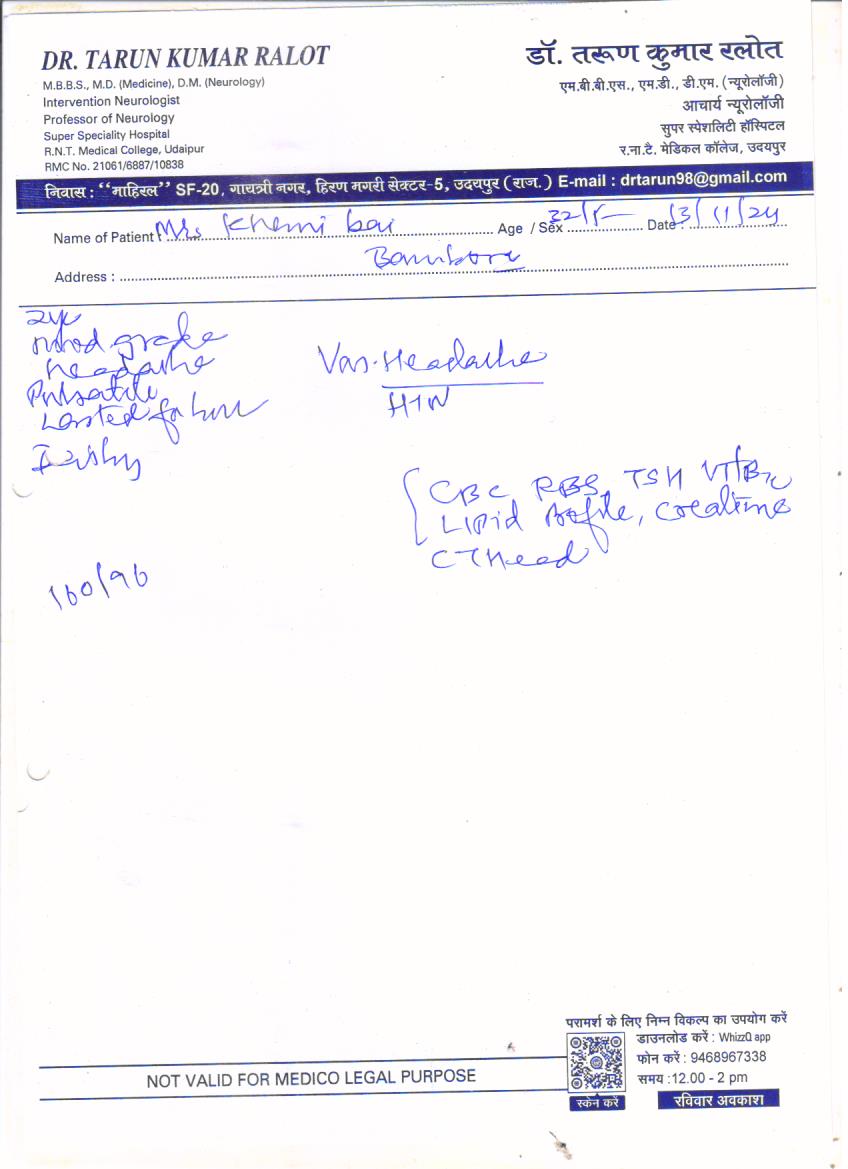 DR. TARUN KUMAR RALOT
M.B.B.S., M.D. (Medicine), D.M. (Neurology)
Intervention Neurologist
Professor of Neurology
Super Speciality Hospital
R.N.T. Medical College, Udaipur
RMC No. 21061/6887/10838
डॉ. तरूण कुमार रलोत
एम.बी.बी.एस., एम.डी., डी.एम. (न्यूरोलॉजी)
आचार्य न्यूरोलॉजी
सुपर स्पेशलिटी हॉस्पिटल
र.ना.टै. मेडिकल कॉलेज, उदयपुर
निवास : “माहिरल” SF-20, गायत्री नगर, हिरण मगरी सेक्टर-5, उदयपुर (राज.) E-mail : drtarun98@gmail.com
Name of Patient : Mrs Khemi bai Age / Sex 32/F Date : 13/11/24
Address : Bambora
2yr
headache
Pulsatile
Lasted for hour
160/96
Vas. Headache
HTN
CBC RBS, TSH VitB12
Lipid Profile, Creatinine
CT Head
परामर्श के लिए निम्न विकल्प का उपयोग करें
डाउनलोड करें : WhizzQ app
फोन करें : 9468967338
समय :12.00 - 2 pm
स्केन करें
रविवार अवकाश
NOT VALID FOR MEDICO LEGAL PURPOSE